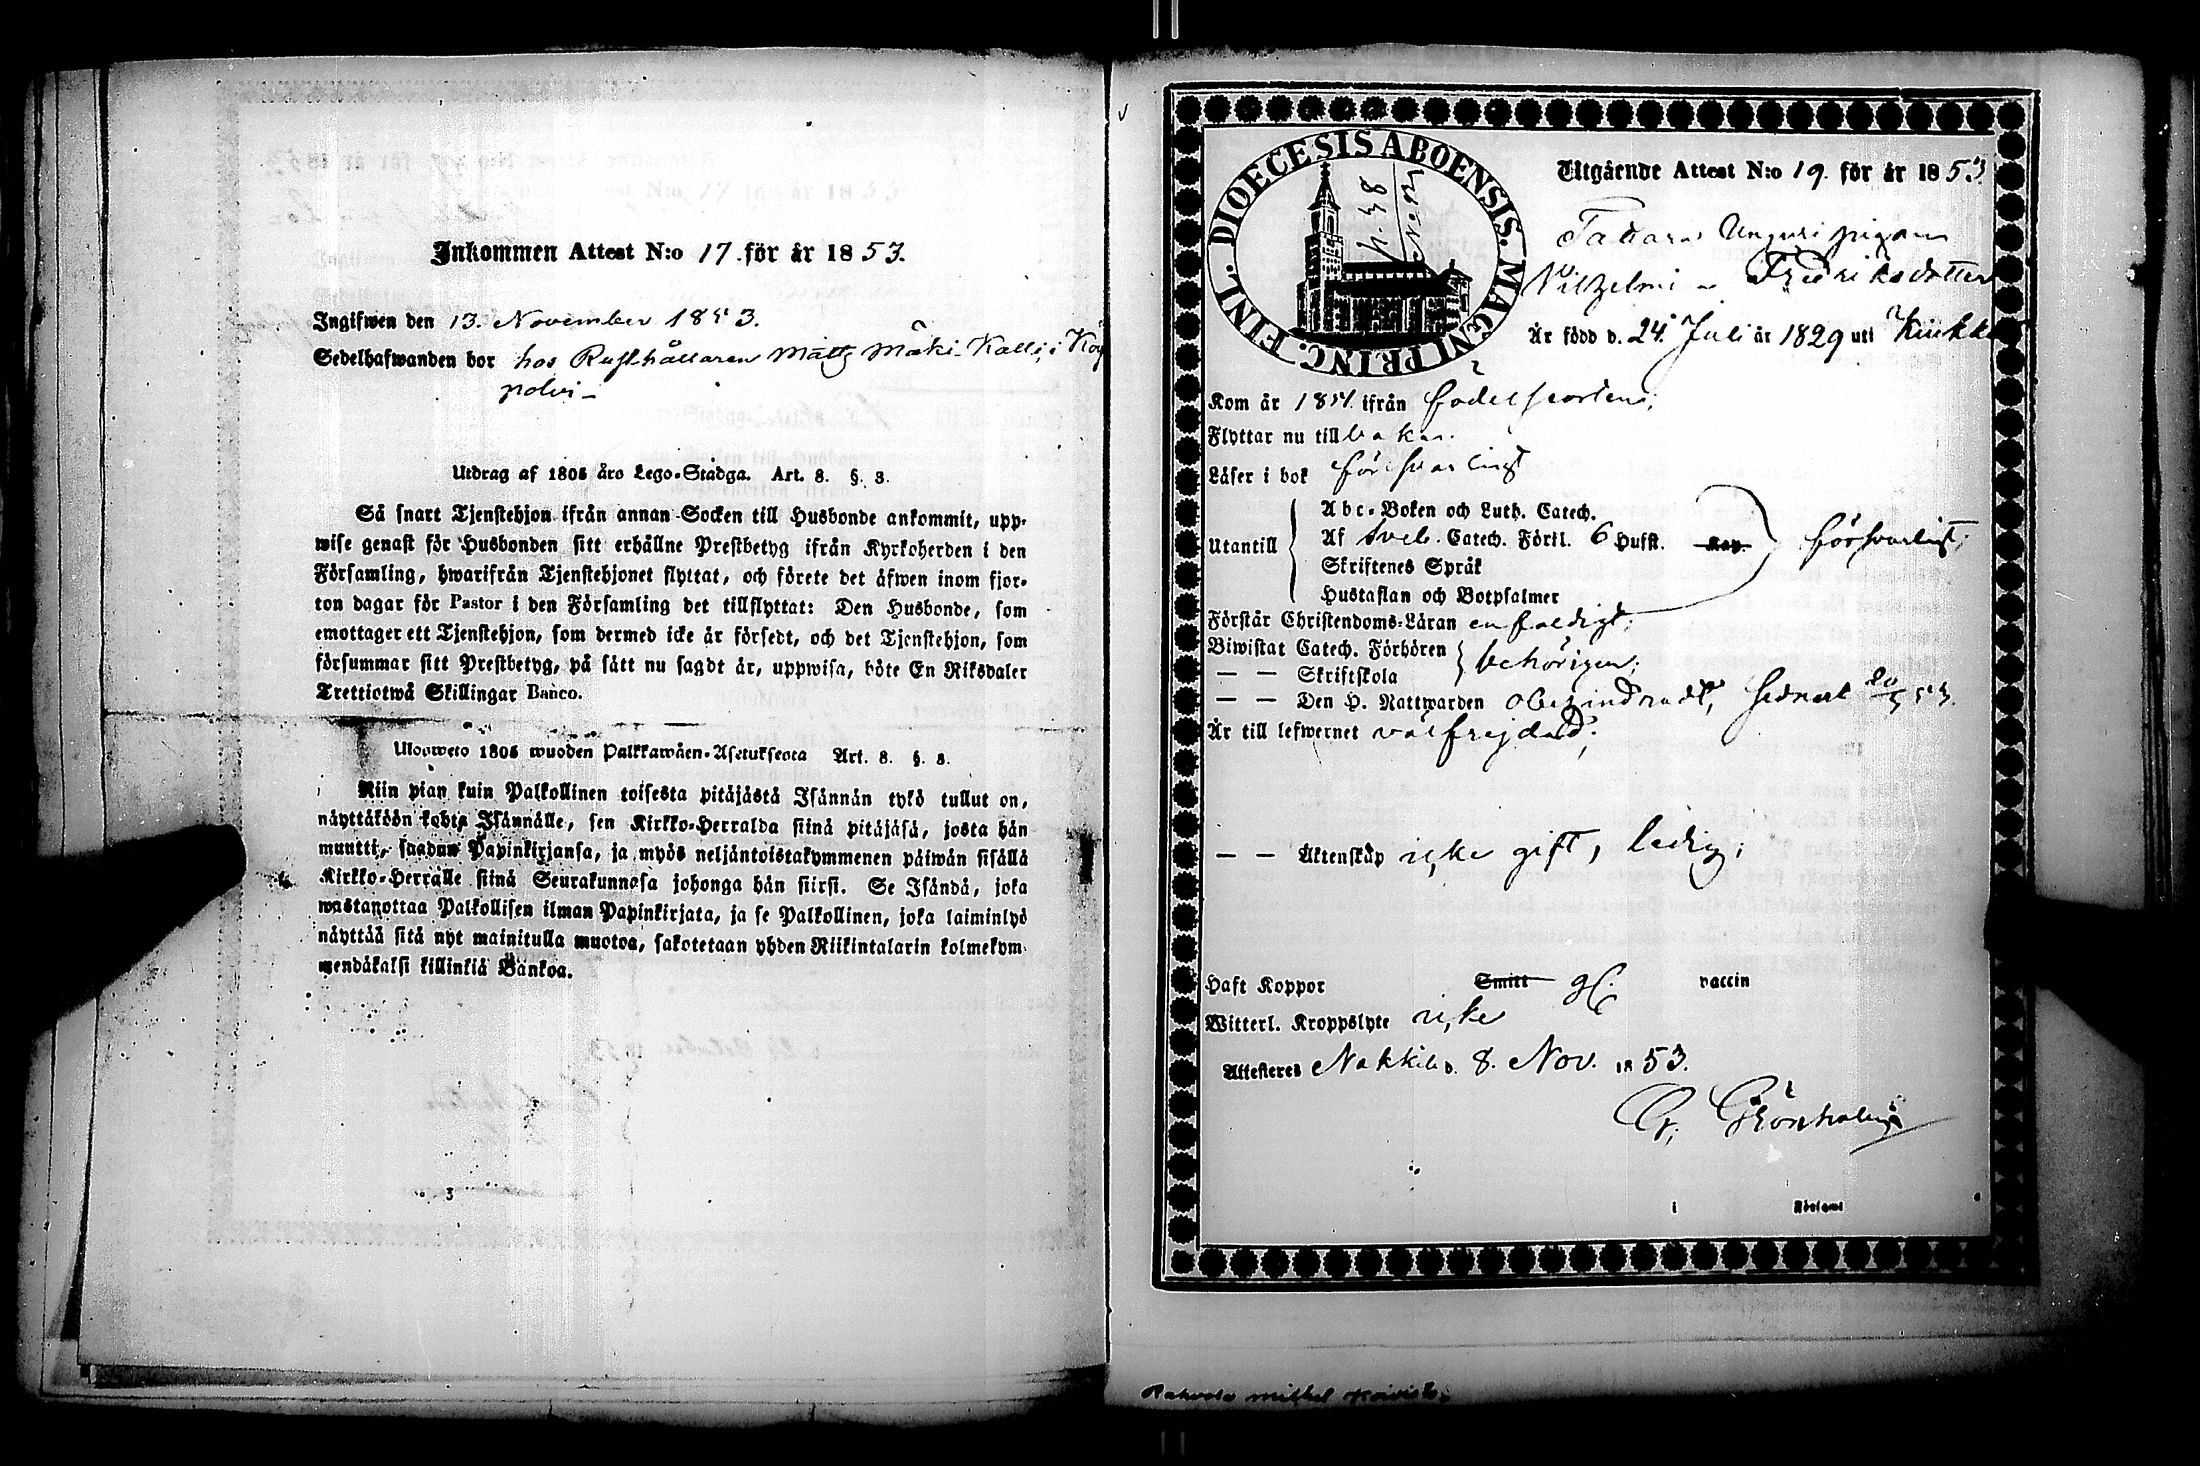 Inkommen Attest N:o 17. för år 1853.
Ingifwen den 13. November 1853.
Sedelhafwanden bor hos Rusthållaren Matts Mäki-Kalli i Köy
polvi
Utdrag af 1805 års Lego-Stadga. Art. 8. §. 3.
Så snart Tjenstehjon ifrån annan Socken till Husbonde ankommit, upp-
wise genast för Husbonden sitt erhållne Prestbetyg ifrån Kyrkoherden i den
Församling, hwarifrån Tjenstehjonet flyttat, och förete det äfwen inom fjor-
ton dagar för Pastor i den Församling det tillflyttat: Den Husbonde, som
emottager ett Tjenstehjon, som dermed icke är försedt, och det Tjenstehjon, som
försummar sitt Prestbetyg, på sätt nu sagdt är, uppwisa, böte En Riksdaler
Trettiotwå Skillingar Banco.
Ulosweto 1805 wuoden Palkkawäen-Asetuksesta Art. 8. §. 3.
Niin pian kuin Palkollinen toisesta pitäjästä Isännän tykö tullut on,
näyttäköön kohta Isännälle, sen Kirkko-Herralda siinä pitäjäsä, josta hän
muutti, saadun Papinkirjansa, ja myös neljäntoistakymmenen päiwän sisällä
Kirkko-Herralle siinä Seurakunnasa johonga hän siirsi. Se Isändä, joka
wastanottaa Palkollisen ilman Papinkirjata, ja se Palkollinen, joka laiminlyö
näyttää sitä nyt mainitulla muotoa, sakotetaan yhden Riikintalarin kolmekym
mendäkaksi killinkiä Bankoa.
3
DIOECESIS ABOENSIS. MAGNI PRINC. FINL.
p. 38
Utgående Attest N:o 19. för år 1853.
Tattara Unguri pigan
Vilhelmina Fredriksdotter
Är född d. 24. Juli år 1829 uti
Kom år 1851. ifrån födelseorten;
Flyttar nu till bakar.
Läser i bok försvarligt
Utantill
Abc-Boken och Luth. Catech.
Af Sveb. Catech. Förkl. 6 Hufst. Kap. försvarligt;
Skriftenes Språk
Hustaflan och Botpsalmer
Förstår Christendoms-Läran enfaldigt;
Biwistat Catech. Förhören behörigen;
— — Skriftskola
— — Den H. Nattwarden obehindradt, sednast 20/5 53.
Är till lefwernet välfrejdad;
— — Äktenskap icke gift, ledig;
Haft Koppor Smitt vaccin
Witterl. Kroppslyte icke
Attesteras Nakkila d. 8. Nov. 1853.
G. Grönholm
i Församl